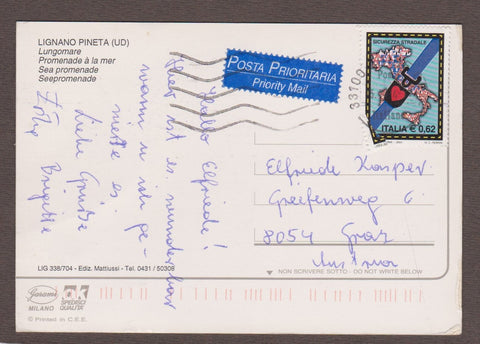 LIGNANO PINETA (UD)
Lungomare
Promenade à la mer
Sea promenade
Seepromenade
POSTA PRIORITARIA
Priority Mail
SICUREZZA STRADALE
ITALIA € 0,62
33100
Hallo Elfriede!
Hier ist es wunderbar
warm u ich ge-
nieße es.
Liebe Grüsse
Brigitte
Elfriede Kasper
Greifenweg 6
8054 Graz
Austria
LIG 338/704 - Ediz. Mattiussi - Tel. 0431 / 50308
NON SCRIVERE SOTTO - DO NOT WRITE BELOW
Garami
MILANO
OK
SPEDISCI
QUALITA'
© Printed in C.E.E.